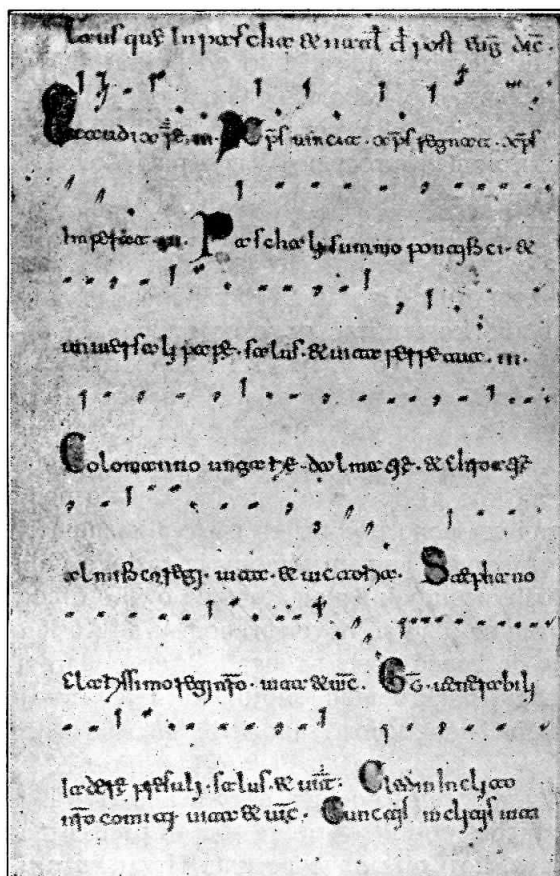 Laus que In pascha & natal d post eug dic.
Exaudi xpe. III. Xps uincit. xps regnat. xps
Imperat. III. Paschali summo pontifici. &
uniuersali pape. salus. & uita perpetua. III.
Colomanno ungarie. dalmatie. & chroatie
almifico regi. uita. & uictoria. Stephano
clarissimo regi nro. uita & uic. GG. uenerabili
Iadere presuli. salus. & uita. Cledin Inclito
nro comiti uita & uic. Cunctis inclitis uita